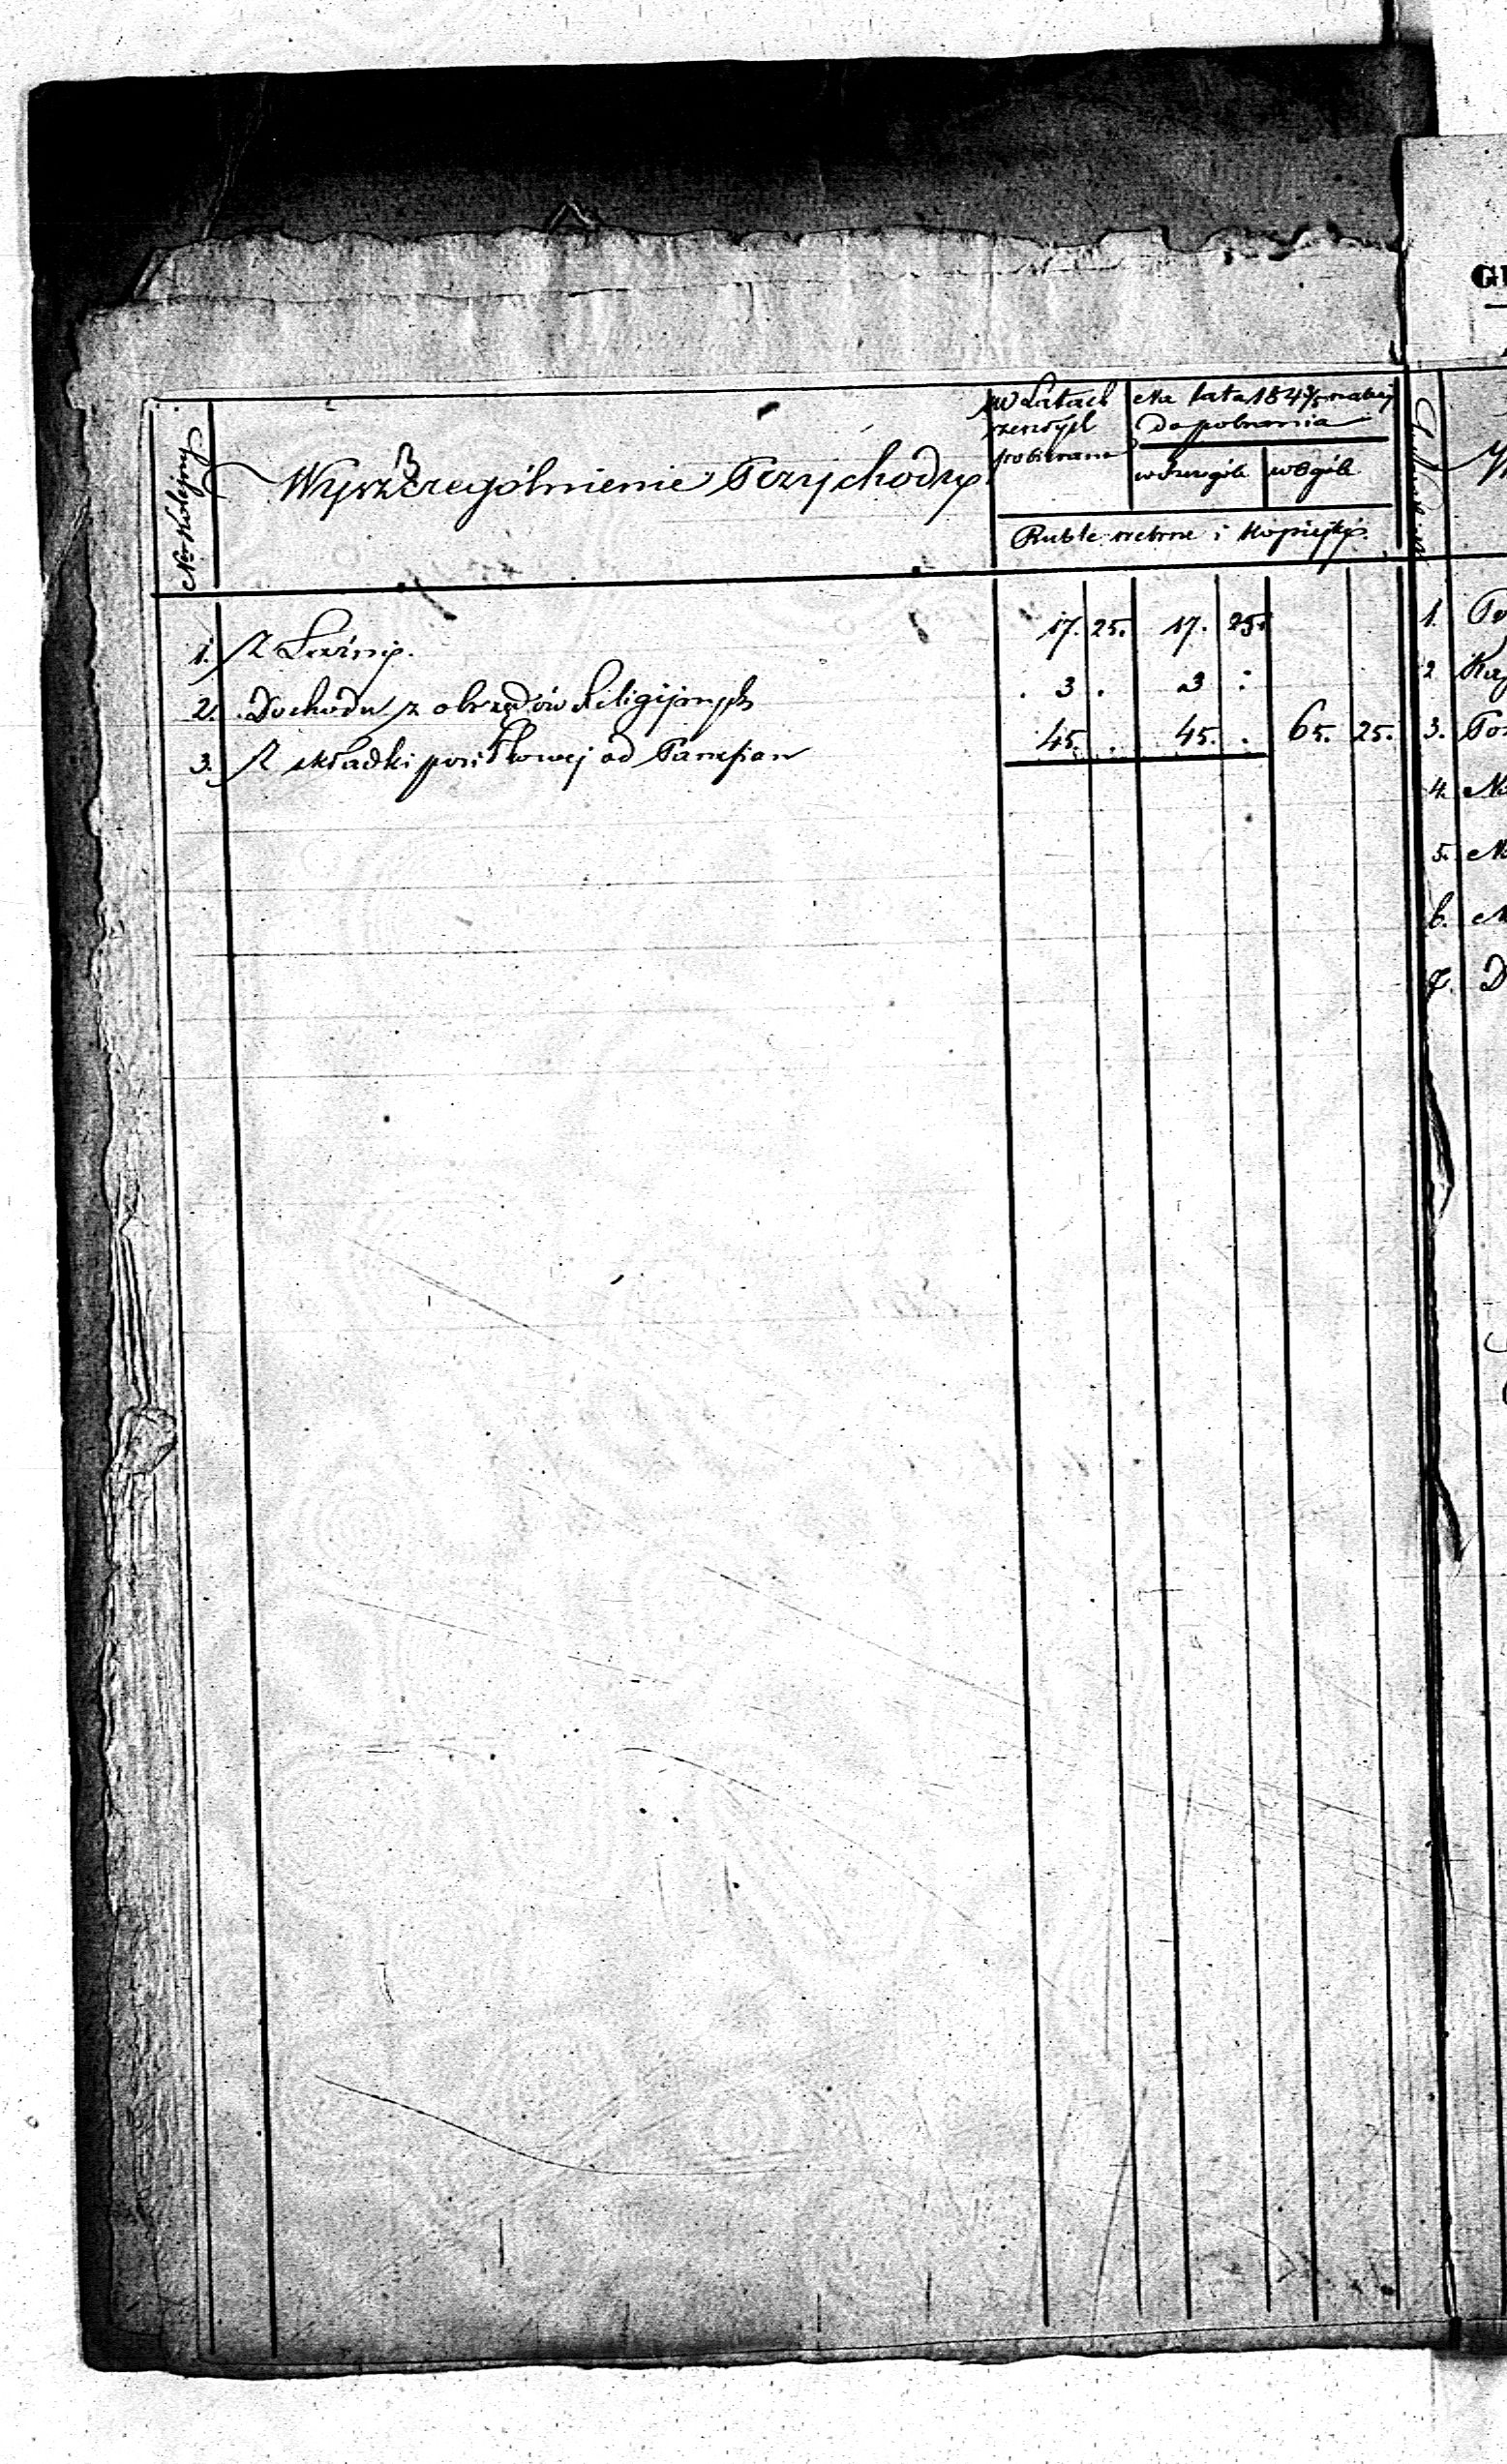 Nro Kolejny
Wyszczególnienie Przychody
w Latach
zeszłych
pobierano
Na lata 184 należy
Do pobrania
w szczególe
w Ogóle
Ruble srebrne i Kopiejki
1. Z Łaźny. 17. 25. 17. 25.
2. Dochodu z obrzędów Religijnych . 3 . 3 :
3. Z składki posiłkowej od Parafian 45. . 45. . 65. 25.
1.
2
3.
4.
5.
6.
7.